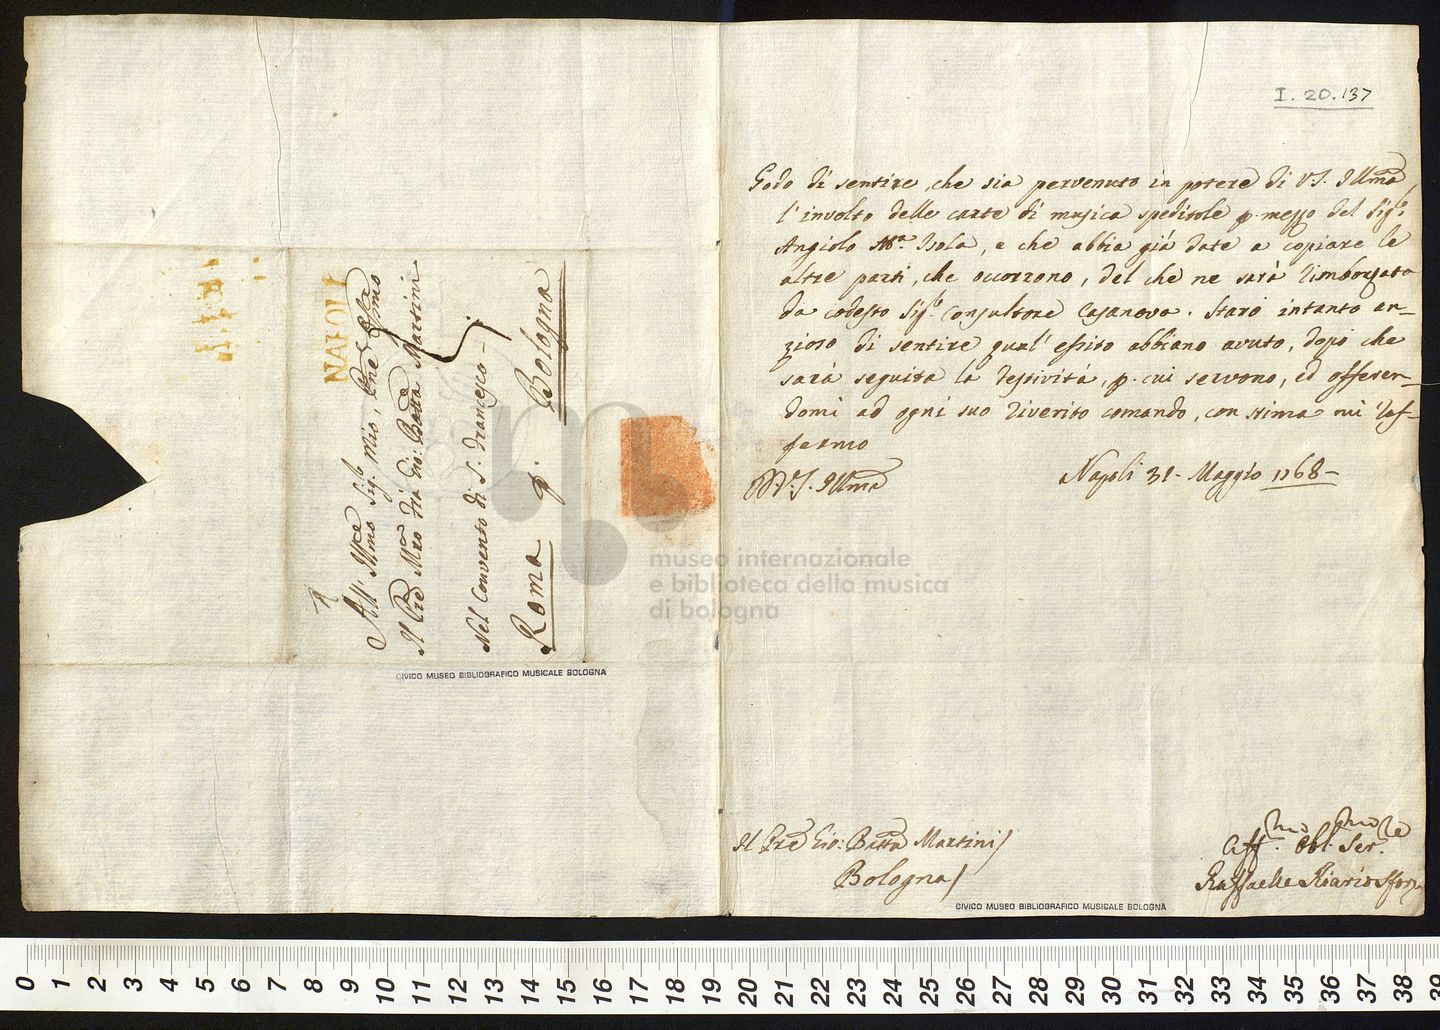 I. 20. 137
Godo di sentire, che sia pervenuto in potere di VS. Illma,
l'involto delle carte di musica speditole p. mezzo del Sigr.
Angiolo Ma. Isola, e che abbia già date a copiare le
altre parti, che occorrono, del che ne sarà rimborsato
da codesto Sigr. Consultore Casanova. Starò intanto an-
zioso di sentire qual' esito abbiano avuto, dopo che
sarà seguita la Festività, p. cui servono, ed offeren-
domi ad ogni suo riverito comando, con stima mi raf-
fermo
Di V.S. Illma
Napoli 31. Maggio 1768
Il Pre Gio: Batta Martini/
Bologna/
Affmo Obl.mo Ser.re
Raffaelle Riario Sforza
NAPOLI
All' Illmo Sig. Mio, Pne
Il Pre Mro Frà Gio: Batta Martini
Nel Convento di S. Francesco
Roma p. Bologna
CIVICO MUSEO BIBLIOGRAFICO MUSICALE BOLOGNA
CIVICO MUSEO BIBLIOGRAFICO MUSICALE BOLOGNA
museo internazionale
e biblioteca della musica
di bologna
0 1 2 3 4 5 6 7 8 9 10 11 12 13 14 15 16 17 18 19 20 21 22 23 24 25 26 27 28 29 30 31 32 33 34 35 36 37 38 39